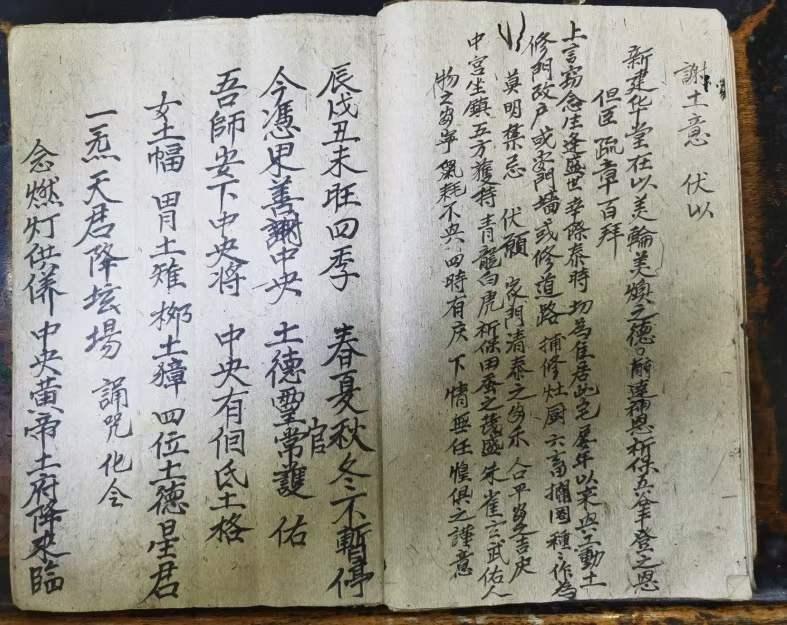 謝土意 伏以
新建华堂在以美輪美煥之德 前達神恩祈保五谷丰登之恩
但臣 疏章百拜
上言窃念生逢盛世幸際泰時切為隹居此宅歷年以來兴工動土
修門改户或安門墻或修道路 捕修灶厨六畜 种种作為
莫明集忌 伏願 家門清泰 人口平安吉庆
中宮坐鎮五方獲持 青龍白虎祈保田蚕之茂盛朱雀玄武佑人
物之安宁 氣耗不兴四時有庆 下情無任惶俱之謹意
辰戌丑未旺四季 春夏秋冬不暫停
今憑里善謝中央 土德靈官常護佑
吾師安下中央將 中央有佪氐土格
女土幅 胃土雉 栁土獐 四位土德星君
一炁天君降坛場 誦咒化仝
念燃灯供养 中央黄帝土府降來臨